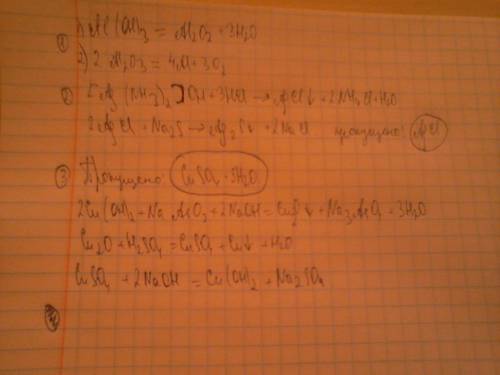 ① 1) Al(OH)3 = Al2O3 + 3H2O
2) 2Al2O3 = 4Al + 3O2
② [Ag(NH3)2]OH + 3HCl → AgCl↓ + 2NH4Cl + H2O
2AgCl + Na2S → Ag2S↓ + 2NaCl пропущено: AgCl
③ Пропущено: CuSO4 · 5H2O
2Cu(OH)2 + Na AsO2 + 2NaOH = Cu2O↓ + Na3AsO4 + 3H2O
Cu2O + H2SO4 = CuSO4 + Cu↓ + H2O
CuSO4 + 2NaOH = Cu(OH)2 + Na2SO4